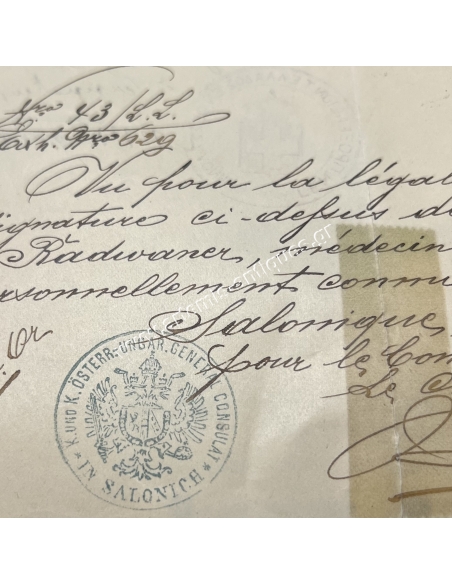 Nro 43/L.L.
Exh. Nro 629
Vu pour la légal
signature ci-dessus de
Radwaner, médecin
ersonnellement connu
Salonique,
pour le Con
Le
K. UND K. ÖSTERR. UNGAR. GENERAL CONSULAT
* IN SALONICH *